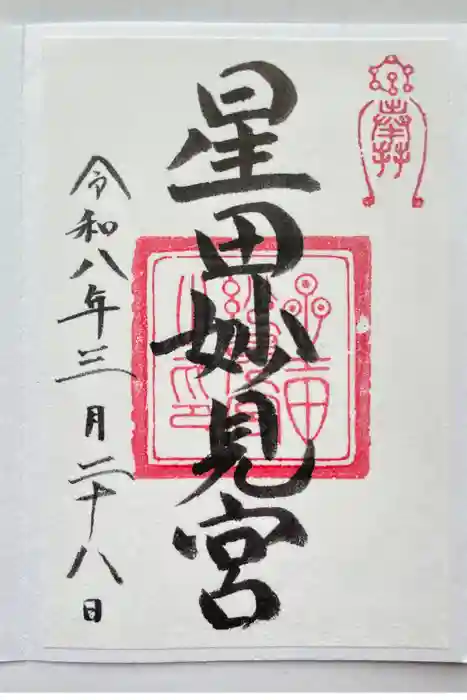 奉拝
星田妙見宮
令和八年三月二十八日